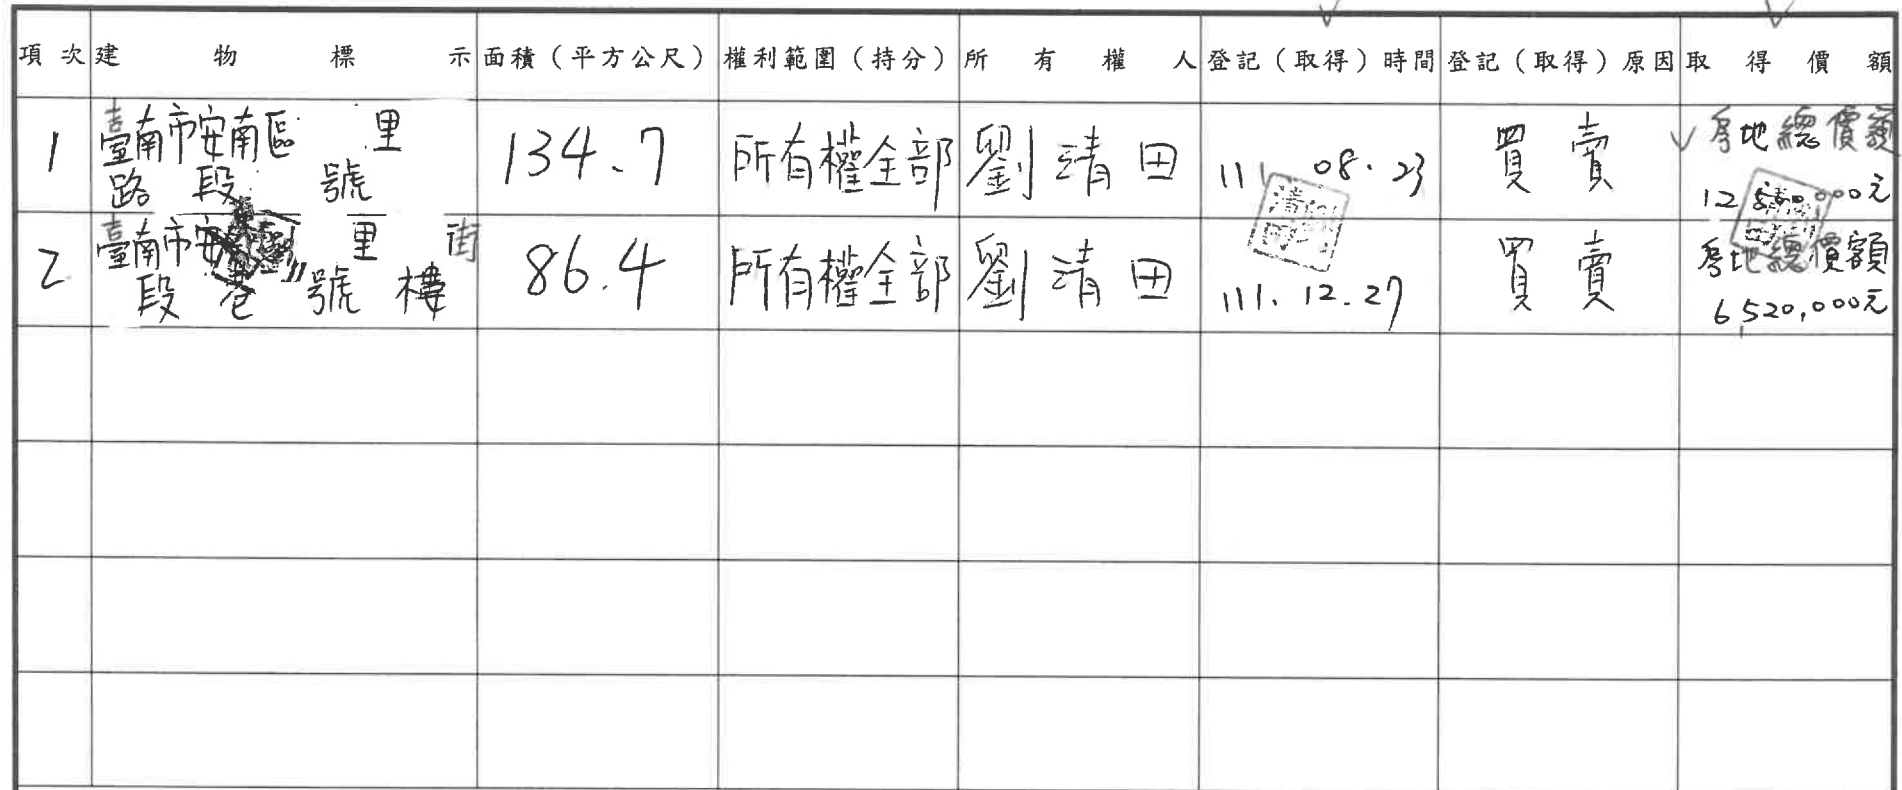 項次 建物標示 面積（平方公尺） 權利範圍（持分） 所有權人 登記（取得）時間 登記（取得）原因 取得價額
1 臺南市安南區 里 134.7 所有權全部 劉清田 111. 08. 23 買賣 房地總價額
路 段 號 元
2 臺南市安 里 街 86.4 所有權全部 劉清田 111.12.27 買賣 房地總價額
段 巷 號 樓 6,520,000元